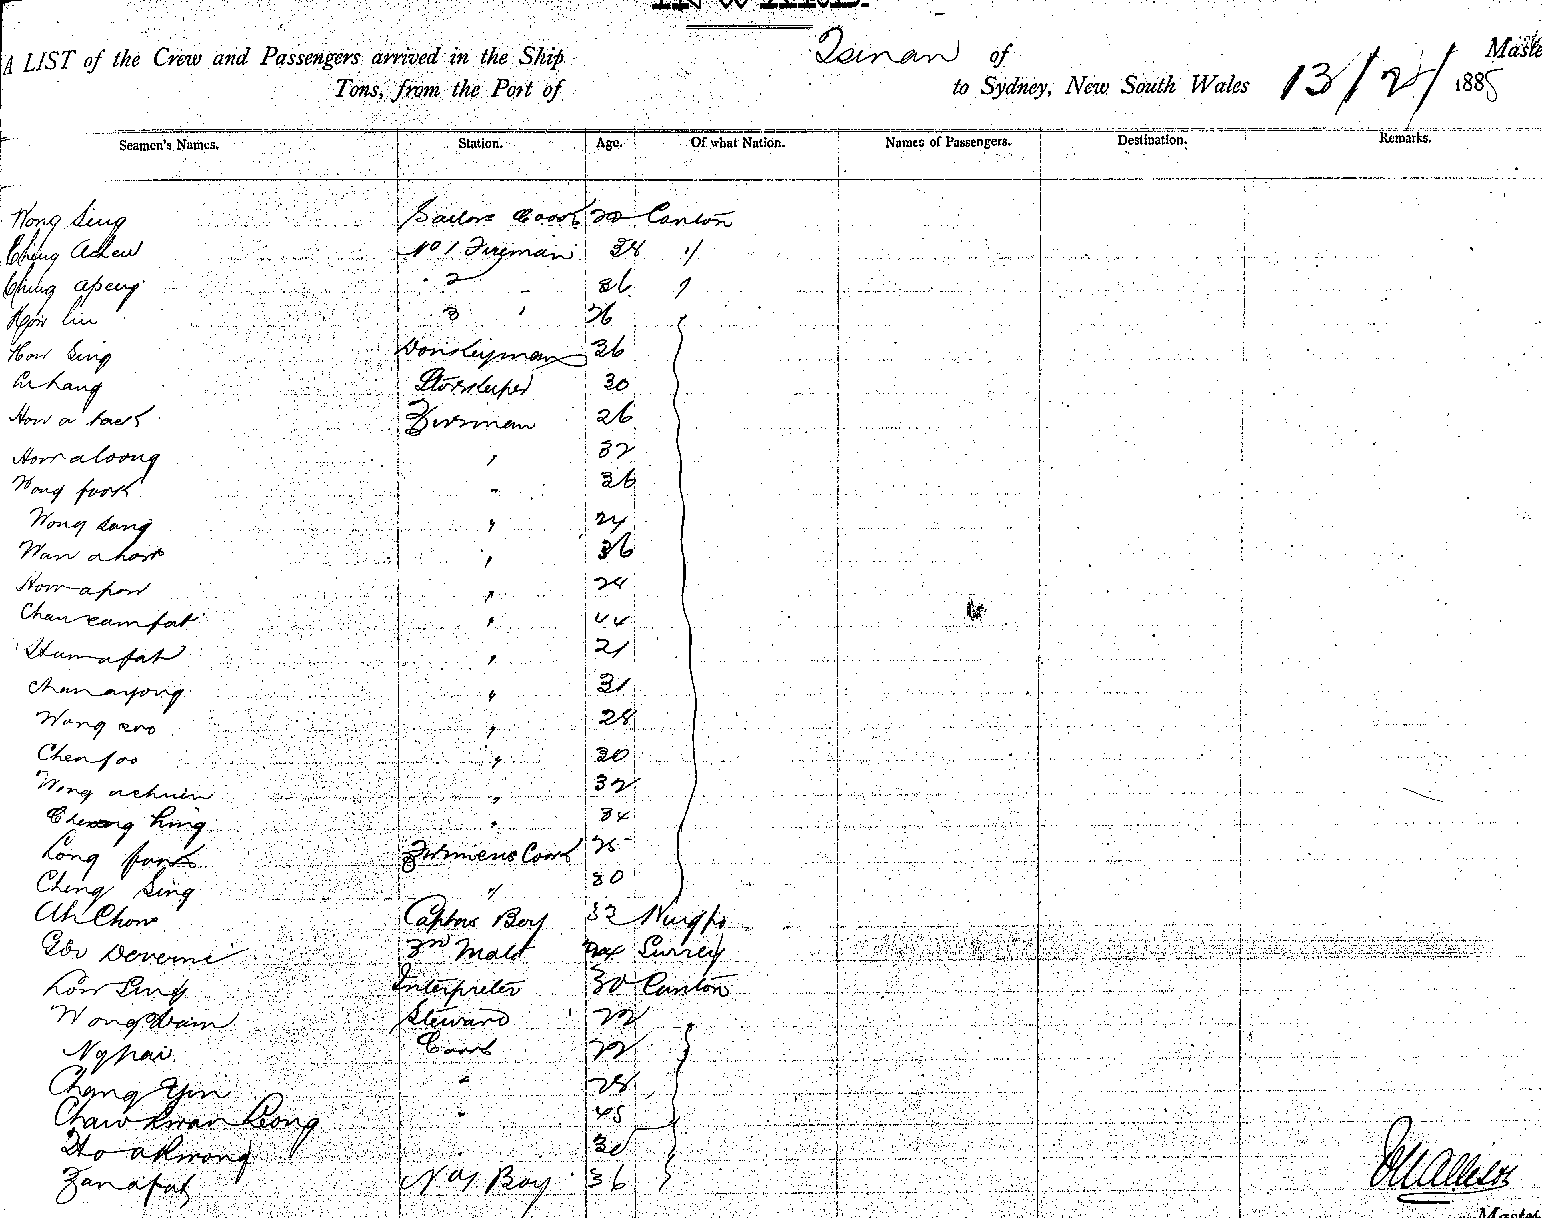 A LIST of the Crew and Passengers arrived in the Ship Tsinan of
Tons, from the Port of to Sydney, New South Wales 13/2/ 1885
Seamen's Names. Station. Age. Of what Nation. Names of Passengers. Destination. Remarks.
Wong Sing Sailors Cook Canton
Ching Acheu No 1 Fireman 38 "
Ching apeng 2 36 "
How liu 3 " 26
How Sing Donkeyman 36
Storekeeper 30
How a tack Fireman 26
How aloong " 32
Wong fook " 36
Wong Sang " 24
Wan ahook " 36
How apow " 24
Chau cam fat " 44
Hum a fat " 21
Chan ayong " 31
Wong soo " 28
Chen foo " 30
Wong achuin " 32
Cheong hing " 34
Long fook Firemens Cook 25
Cheng Sing " 30
Ah Chow Captns Boy 32 Ningpo
Geo 3rd Mate 24 Surrey
Low Sing Interpreter 30 Canton
Wong Wam Steward 22
Ng pai Cook 22
Chang Yin " 28
Chaw kwan Leong " 48
Ho akwong 30
Fan a fat No 1 Boy 36